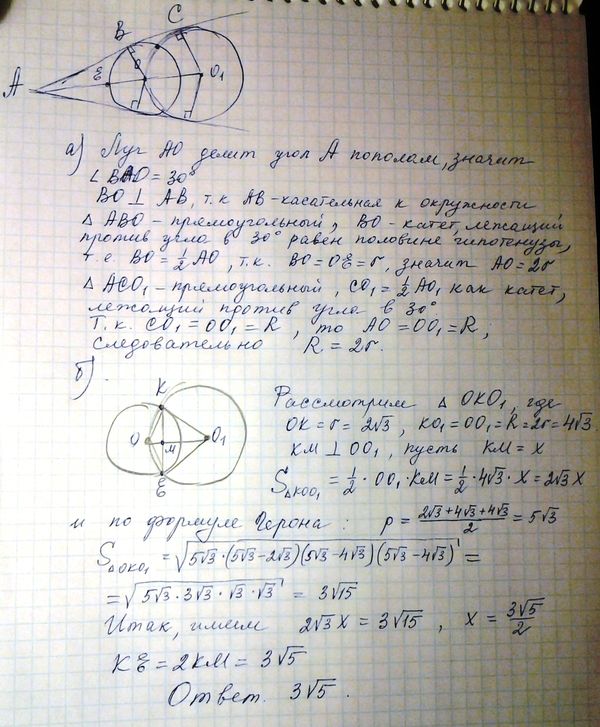 A B C E O O₁
а) Луч AO делит угол A пополам, значит
∠ BAO = 30°
BO ⊥ AB, т.к AB - касательная к окружности
△ ABO - прямоугольный, BO - катет, лежащий
против угла в 30° равен половине гипотенузы,
т.е. BO = 1/2 AO, т.к. BO = OE = r, значит AO = 2r
△ ACO₁ - прямоугольный, CO₁ = 1/2 AO₁ как катет,
лежащий против угла в 30°
Т.к. CO₁ = OO₁ = R, то AO = OO₁ = R;
следовательно R = 2r.
б)
K O M O₁ E
Рассмотрим △ OKO₁, где
OK = r = 2√3, KO₁ = OO₁ = R = 2r = 4√3.
KM ⊥ OO₁, пусть KM = x
S△KOO₁ = 1/2 · OO₁ · KM = 1/2 · 4√3 · x = 2√3 x
и по формуле Герона: p = (2√3 + 4√3 + 4√3)/2 = 5√3
S△OKO₁ = √(5√3 · (5√3 - 2√3)(5√3 - 4√3)(5√3 - 4√3)) =
= √(5√3 · 3√3 · √3 · √3) = 3√15
Итак, имеем 2√3 x = 3√15, x = 3√5/2
KE = 2KM = 3√5
Ответ. 3√5.